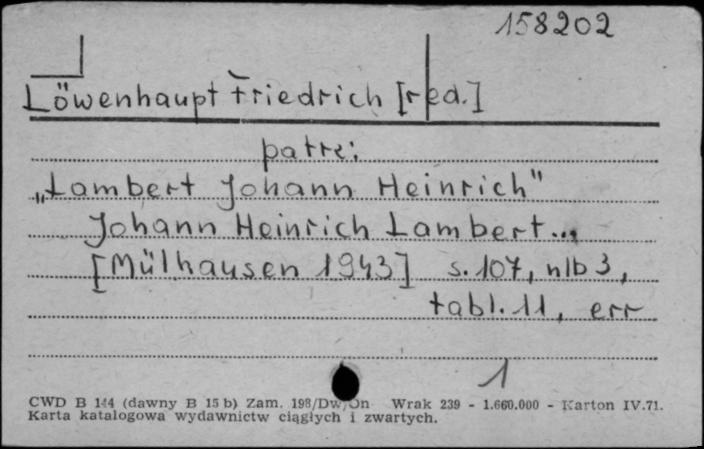 158202
Löwenhaupt Friedrich [red.]
patrz:
„Lambert Johann Heinrich"
Johann Heinrich Lambert...
[Mülhausen 1943] s. 107, nlb 3,
tabl. 11, err
1
CWD B 144 (dawny B 15 b) Zam. 198/Dw/On Wrak 239 - 1.660.000 - Karton IV.71.
Karta katalogowa wydawnictw ciągłych i zwartych.